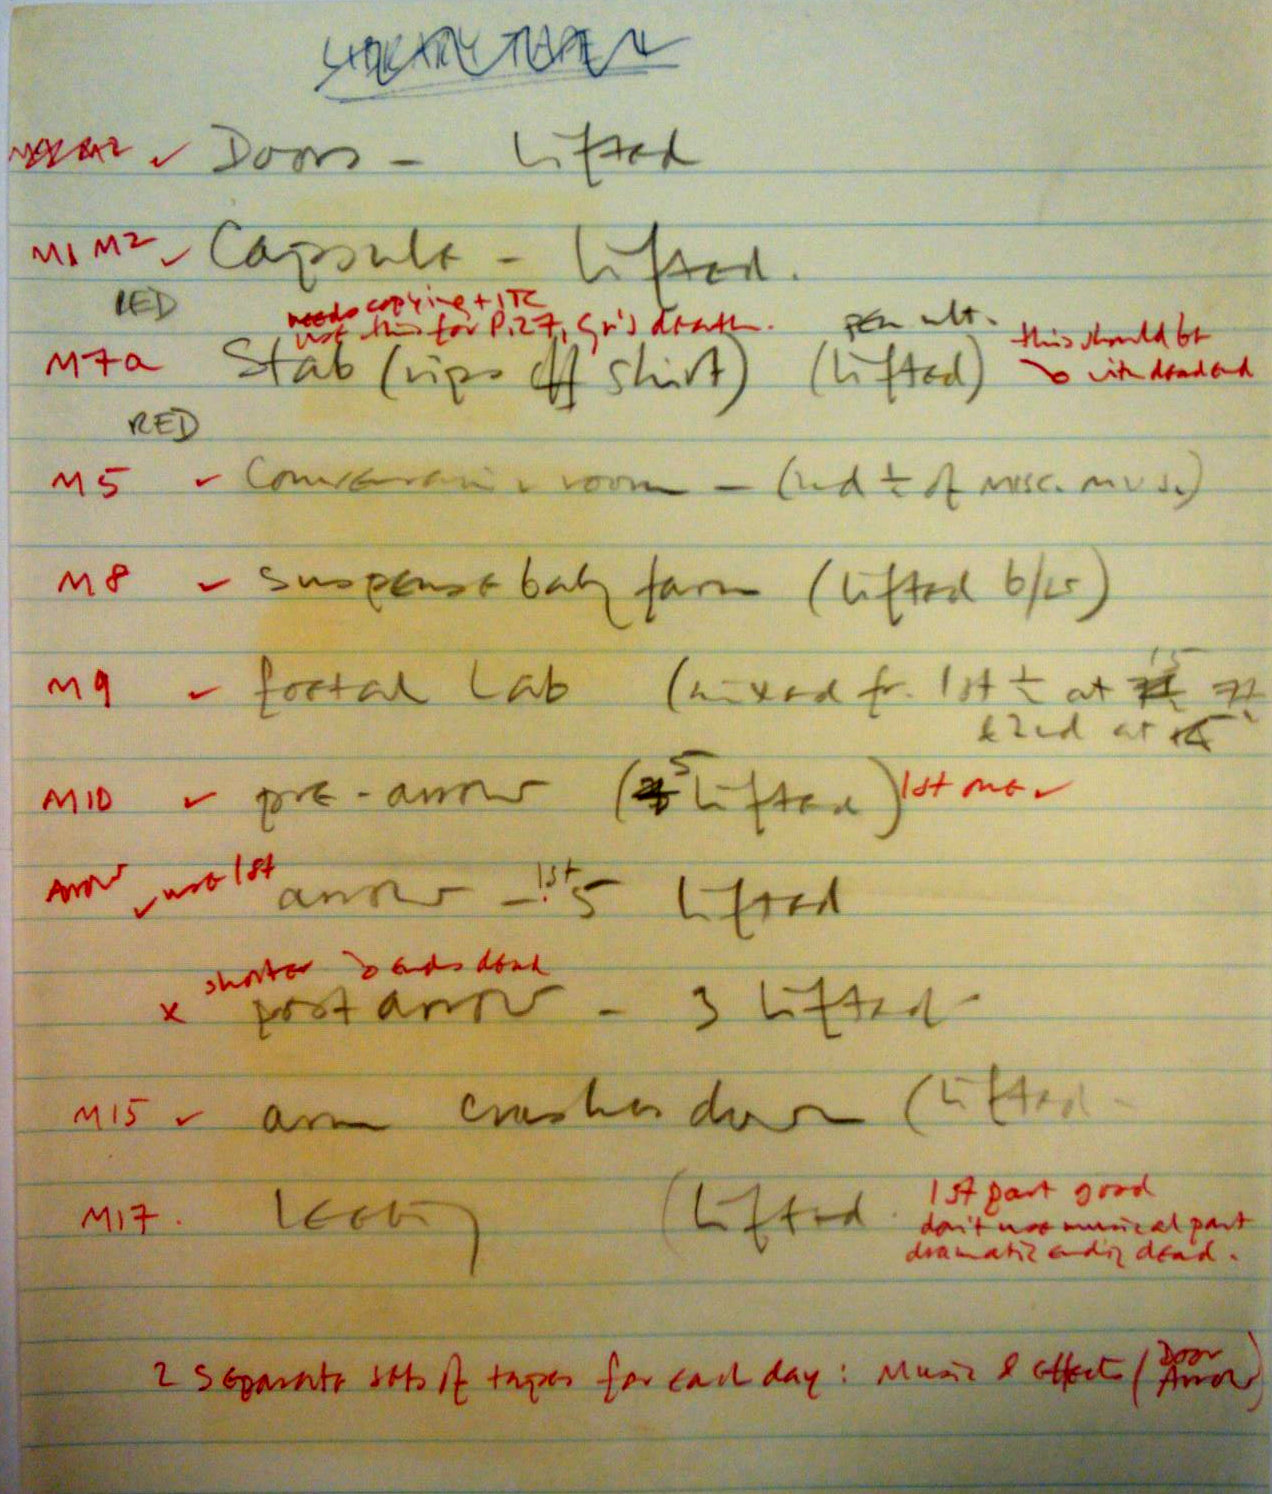 LIBRARY TAPE
✓ Doors - Lifted
M1 M2 ✓ Capsule - Lifted.
RED
needs copying + ITC
use this for P.27, Gr's death.
M7a Stab (rips off shirt) (Lifted) penult. this should be
with dead end
RED
M5 ✓ Conversation room - (2nd ½ of misc. mus.)
M8 ✓ suspense baby farm (Lifted 6/15)
M9 ✓ foetal Lab (mixed fr. 1st ½ at 15 7½
& 2nd at 15
M10 ✓ pre-arrow (5 Lifted) 1st one ✓
Arrow ✓ use 1st arrow - 1st 5 Lifted
shorter & ends dead
x post arrow - 3 Lifted
M15 ✓ arm crashes down (Lifted -
M17. (Lifted. 1st part good
don't use musical part
dramatic ending dead.
2 separate sets of tapes for each day: Music & effects (Door
Arrow)